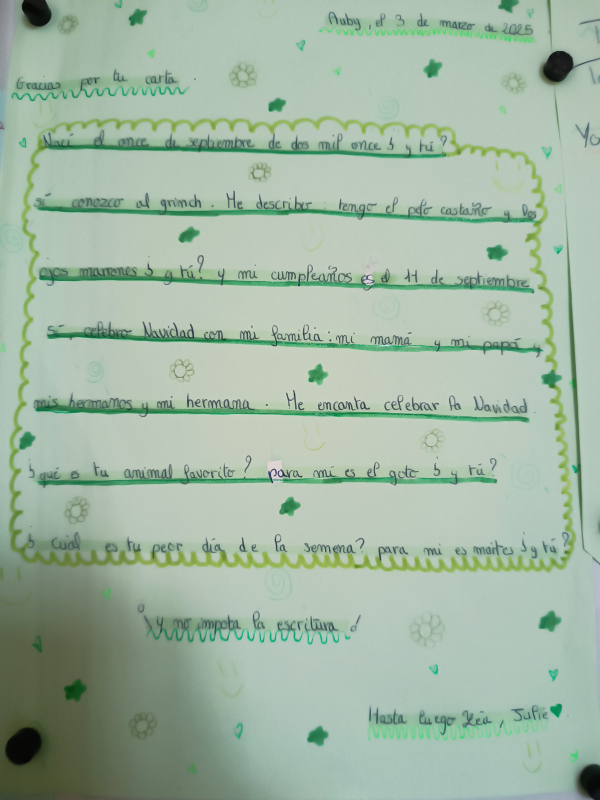 Auby, el 3 de marzo de 2025
Gracias por tu carta.
Nací el once de septiembre de dos mil once ¿ y tú?
sí conozco al grinch. Me describo: tengo el pelo castaño y los
ojos marrones ¿ y tú? y mi cumpleaños es el 11 de septiembre
sí, celebro Navidad con mi familia: mi mamá y mi papá y
mis hermanos y mi hermana. Me encanta celebrar la Navidad.
¿qué es tu animal favorito? para mí es el goto ¿ y tú?
¿ cuál es tu peor día de la semena? para mi es martes ¿ y tú?
¡ y no impota la escritura !
Hasta luego, Julie
Ya